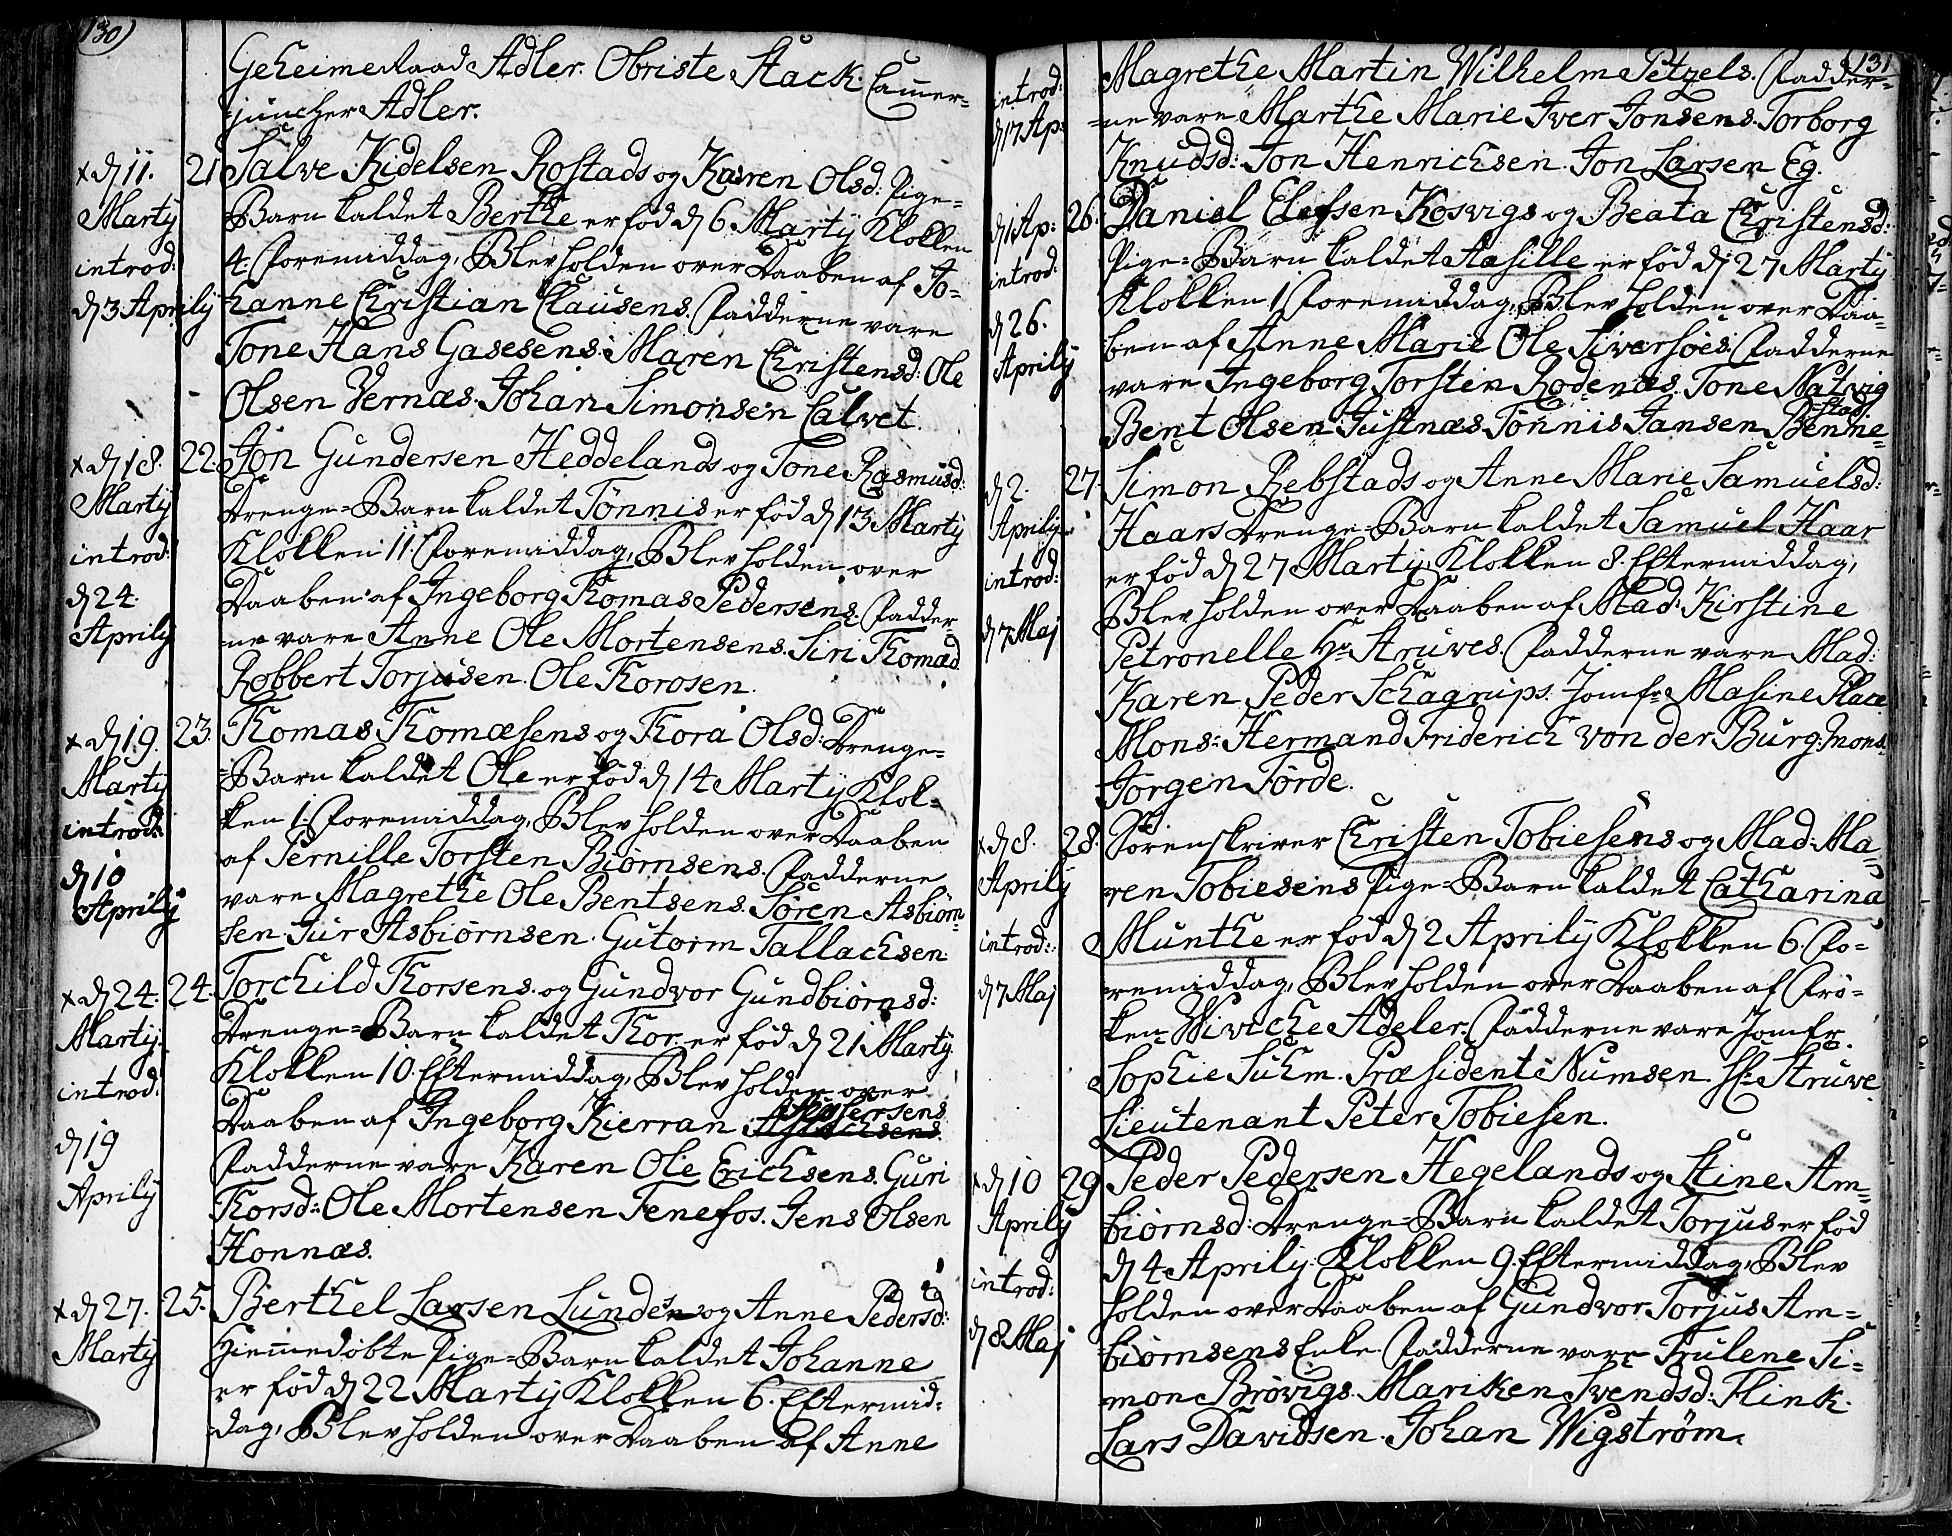 130)
Geheime Raad Adler. Obriste Stack. Camer=
juncher Adler.
x d 11. Marty introd: d 3 Aprily
21 Salve Kidelsen Rostads og Karen Olsd: Pige=
Barn kaldet Berthe er föd d 6 Marty Klokken
4. Foremiddag, Blev holden over Daaben af Jo=
hanne Christian Clausens. Fadderne vare
Tone Hans Gasesens. Maren Christensd: Ole
Olsen Vernæs. Johan Simonsen Calvet.
x d 18. Marty introd: d 24. Aprily
22. Jön Gundersen Heddelands og Tone Rasmusd:
Drenge=Barn kaldet Tönnis er föd d 13 Marty
Klokken 11. Foremiddag, Blev holden over
Daaben af Ingeborg Thomas Pedersens. Fadder=
ne vare Anne Ole Mortensens. Siri Thomæd
Robbert Torjusen. Ole Thorosen.
x d 19. Marty introd: d 10 Aprily
23. Thomas Thomæsens og Thora Olsd: Drenge=
=Barn kaldet Ole er föd d 14 Marty Klok=
ken 1. Foremiddag, Blev holden over Daaben
af Pernille Torsten Biørnsens. Fadderne
vare Magrethe Ole Bentsens. Sören Asbiörn=
sen. Siur Asbiörnsen. Gutorm Tallachsen
x d 24. Marty. introd: d 19 Aprily
24. Torchild Thorsens og Gundvor Gundbiörnsd:
Drenge=Barn kaldet Thor. er föd d 21 Marty.
Klokken 10. Eftermiddag, Blev holden over
Daaben af Ingeborg Kierran
Fadderne vare Karen Ole Erichsens. Guri
Thorsd: Ole Mortensen Fenefos. Jens Olsen
Honnæs.
x d 27. Marty
25. Berthel Larsen Lundes og Anne Pedersd:
Hiemedöbte Pige=Barn kaldet Johanne
er föd d 22 Marty Klokken 6. Eftermid=
dag, Blev holden over Daaben af Anne
131
introd: d 17 Ap:
Magrethe Martin Wilhelm Petzels. Fadder=
=ne vare Marthe Marie Iver Jonsens. Torborg
Knudsd: Jon Henrichsen. Jon Larsen Eg.
d 1 Ap: introd: d 26. Aprily
26. Daniel Elefsen Kosvigs og Beata Christensd:
Pige=Barn kaldet Aasille er föd d 27 Marty
Klokken 1 Foremiddag, Blev holden over Daa=
ben af Anne Marie Ole Siversöes. Fadderne
vare Ingeborg Torsten Rodenæs. Tone Natvig
Bent Olsen Justnæs. Tönnis Jansen Benne=
=stad.
d 2. Aprily introd: d 7 Maj
27. Simon Rebstads og Anne Marie Samuelsd:
Haars Drenge=Barn kaldet Samuel Haar
er föd d 27 Marty Klokken 8. Eftermiddag,
Blev holden over Daaben af Mad: Kirstine
Petronelle Hr Struves. Fadderne vare Mad:
Karen Peder Schagrups. Jomfr: Masine Place
Mons: Hermand Friderich von der Burg. Mons.
Jorgen Förde.
x d 8. Aprily introd: d 7 Maj
28. Sörenskriver Christen Tobiesens og Mad: Ma=
ren Tobiesens Pige=Barn kaldet Catharina
Munthe er föd d 2 Aprily Klokken 6. Fo=
remiddag, Blev holden over Daaben af Frö=
ken Wivicke Adeler. Fadderne vare Jomfr.
Sophie Suhm. Præsident Numsen. Hr. Struve.
Lieutenant Peter Tobiesen.
x d 10 Aprily introd: d 8 Maj
29 Peder Pedersen Hegelands og Stine Am=
biörnsd: Drenge=Barn kaldet Torjus er föd
d 4 Aprily. Klokken 9. Eftermiddag, Blev
holden over Daaben af Gundvor Torjus Am=
biörnsens Enke. Fadderne vare Trulene Si=
mon Brövigs. Mariken Svendsd: Flink.
Lars Davidsen. Johan Wigström.